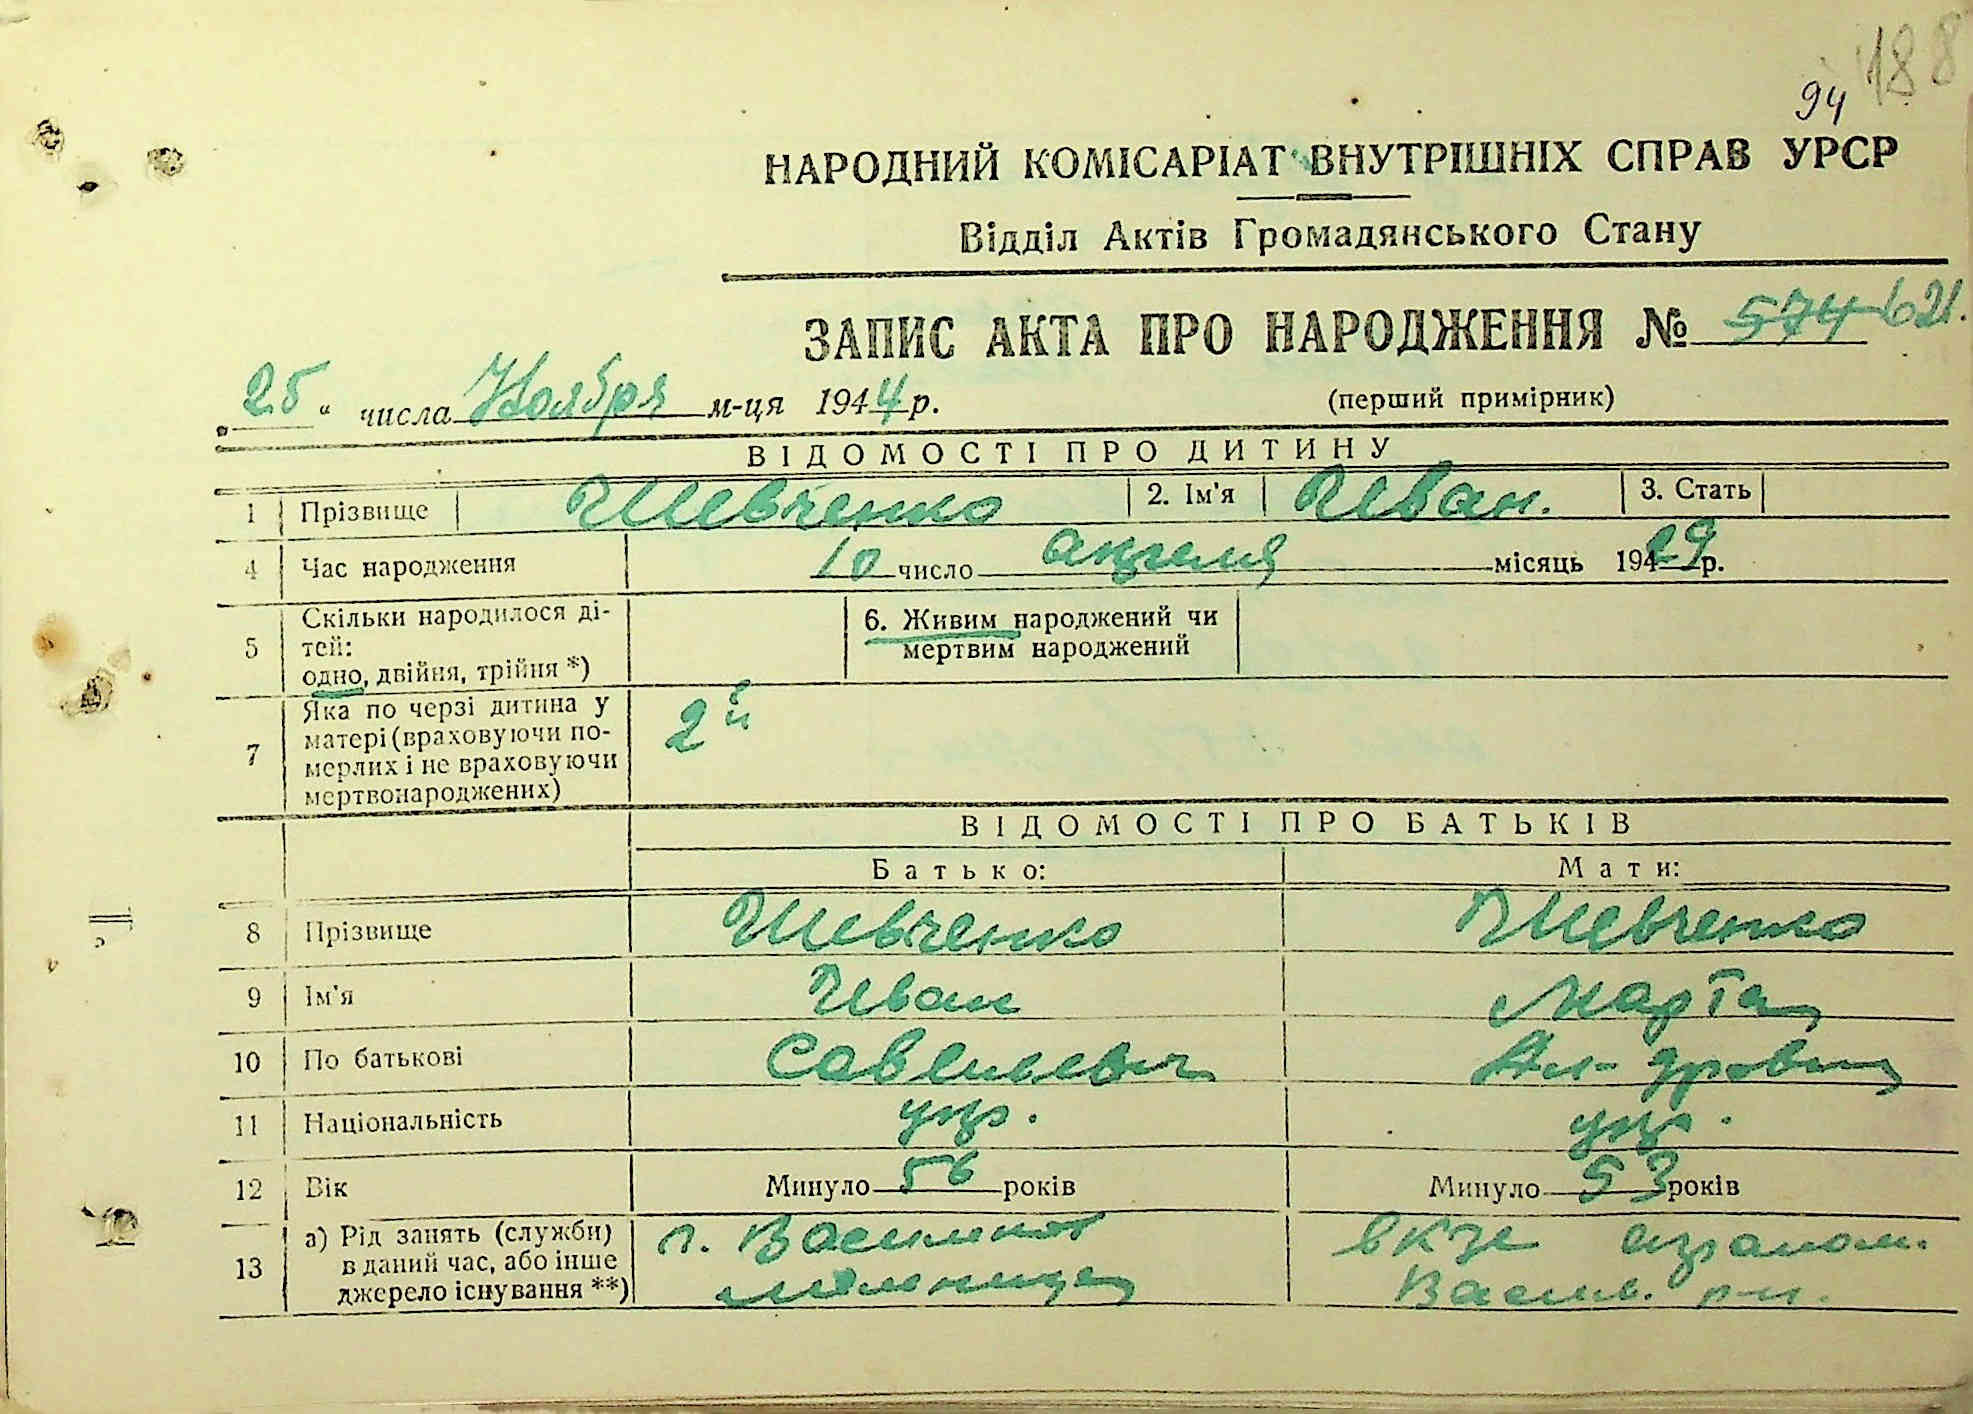 188
94
НАРОДНИЙ КОМІСАРІАТ ВНУТРІШНІХ СПРАВ УРСР
Відділ Актів Громадянського Стану
ЗАПИС АКТА ПРО НАРОДЖЕННЯ № 574 621.
„25“ числа Ноября м-ця 1944 р.
(перший примірник)
ВІДОМОСТІ ПРО ДИТИНУ
1 Прізвище Шевченко 2. Ім'я Иван. 3. Стать
4 Час народження 10 число апреля місяць 1929 р.
5 Скільки народилося ді-
тей:
одно, двійня, трійня *)
6. Живим народжений чи
мертвим народжений
7 Яка по черзі дитина у
матері (враховуючи по-
мерлих і не враховуючи
мертвонароджених)
2й
ВІДОМОСТІ ПРО БАТЬКІВ
Батько: Мати:
8 Прізвище Шевченко Шевченко
9 Ім'я Иван Марта
10 По батькові Савельевич Ал-дровна
11 Національність укр. укр.
12 Вік Минуло 56 років Минуло 53 років
13 а) Рід занять (служби)
в даний час, або інше
джерело існування **)
г. Васильков
мельница
агроном.
Васильк. р-н.